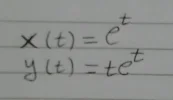 x(t) = e^t
y(t) = te^t